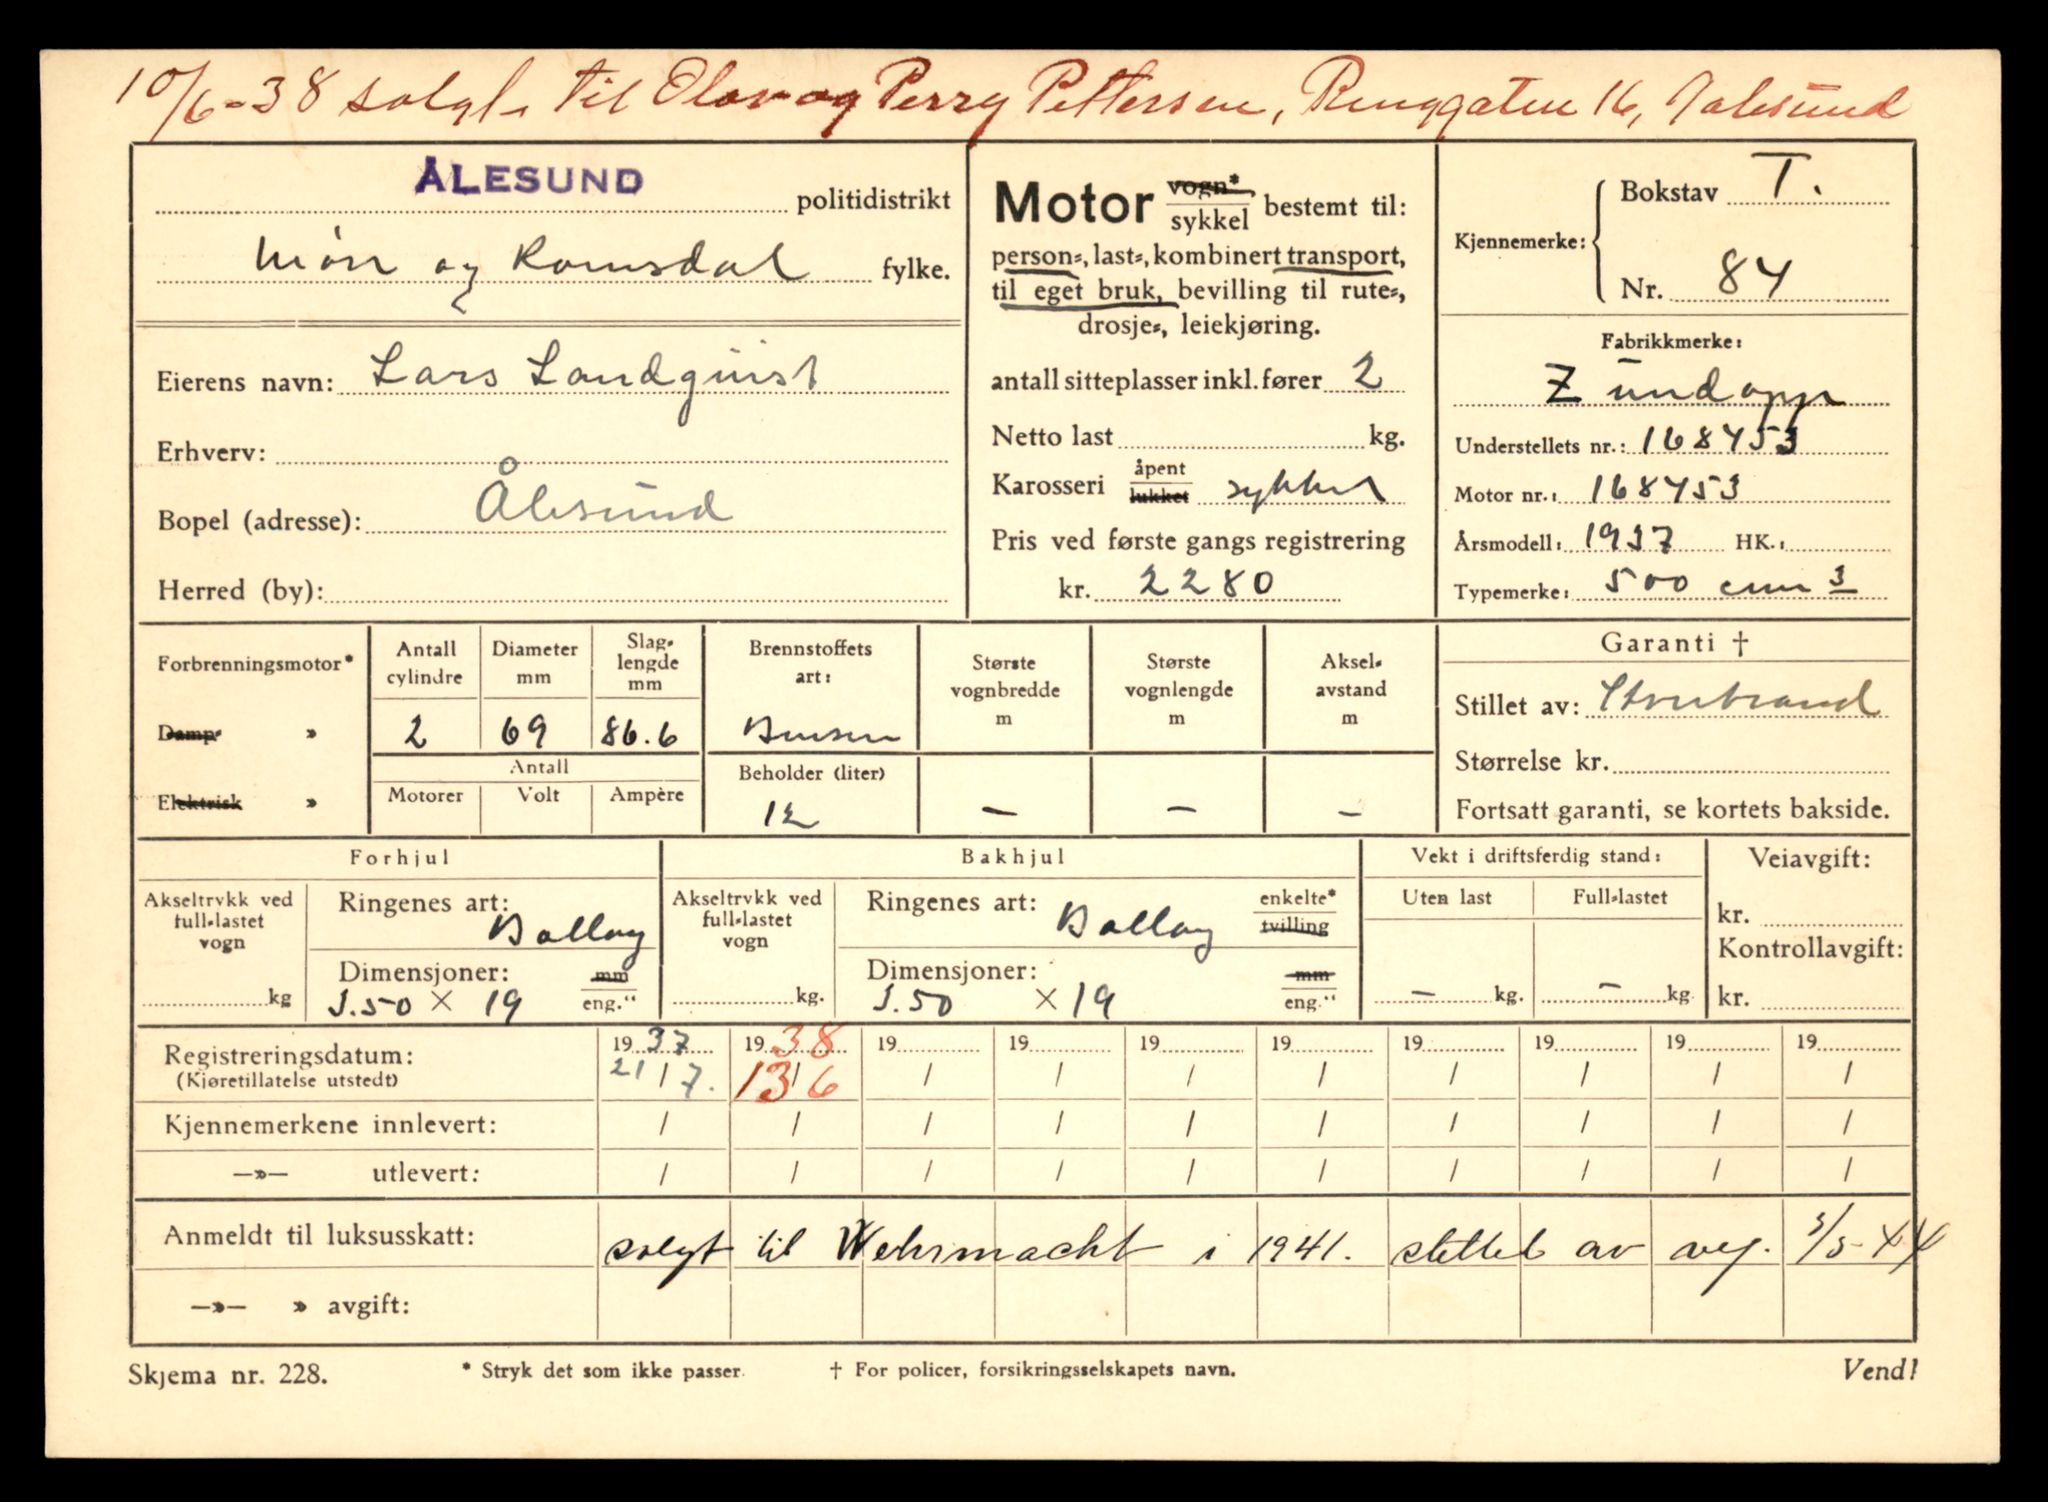 10/6-38 solgt til Olav og Perry Pettersen, Ringgaten 16, Aalesund
ÅLESUND politidistrikt
Møre og Romsdal fylke.
Eierens navn: Lars Landquist
Erhverv:
Bopel (adresse): Ålesund
Herred (by):
Motor vogn* sykkel bestemt til:
person-, last-, kombinert transport,
til eget bruk, bevilling til rute-,
drosje-, leiekjøring.
antall sitteplasser inkl. fører 2
Netto last kg.
Karosseri åpent lukket sykkel
Pris ved første gangs registrering
kr. 2280
Kjennemerke: Bokstav T.
Nr. 84
Fabrikkmerke:
Zündapp
Understellets nr.: 168453
Motor nr.: 168453
Årsmodell: 1937 HK.:
Typemerke: 500 cm 3
Forbrenningsmotor*
Damp- »
Elektrisk »
Antall cylindre
2
Diameter mm
69
Slaglengde mm
86.6
Antall
Motorer Volt Ampère
Brennstoffets art:
Bensin
Beholder (liter)
12
Største vognbredde m
–
Største vognlengde m
–
Akselavstand m
–
Garanti †
Stillet av: Storebrand
Størrelse kr.
Fortsatt garanti, se kortets bakside.
Forhjul
Akseltrykk ved full-lastet vogn
kg
Ringenes art: Ballong
Dimensjoner: mm
3.50 × 19 eng."
Bakhjul
Akseltrykk ved full-lastet vogn
kg.
Ringenes art: Ballong enkelte* tvilling
Dimensjoner: mm
3.50 × 19 eng."
Vekt i driftsferdig stand:
Uten last Full-lastet
– kg. – kg
Veiavgift:
kr.
Kontrollavgift:
kr.
Registreringsdatum: 19 37 19 38 19 19 19 19 19 19 19 19
(Kjøretillatelse utstedt) 21 / 7. 13 / 6 / / / / / / / /
Kjennemerkene innlevert: / / / / / / / / / /
—»— utlevert: / / / / / / / / / /
Anmeldt til luksusskatt: solgt til Wehrmacht i 1941. slettet av reg. 3/5-44
—»— » avgift:
Skjema nr. 228. * Stryk det som ikke passer. † For policer, forsikringsselskapets navn. Vend!